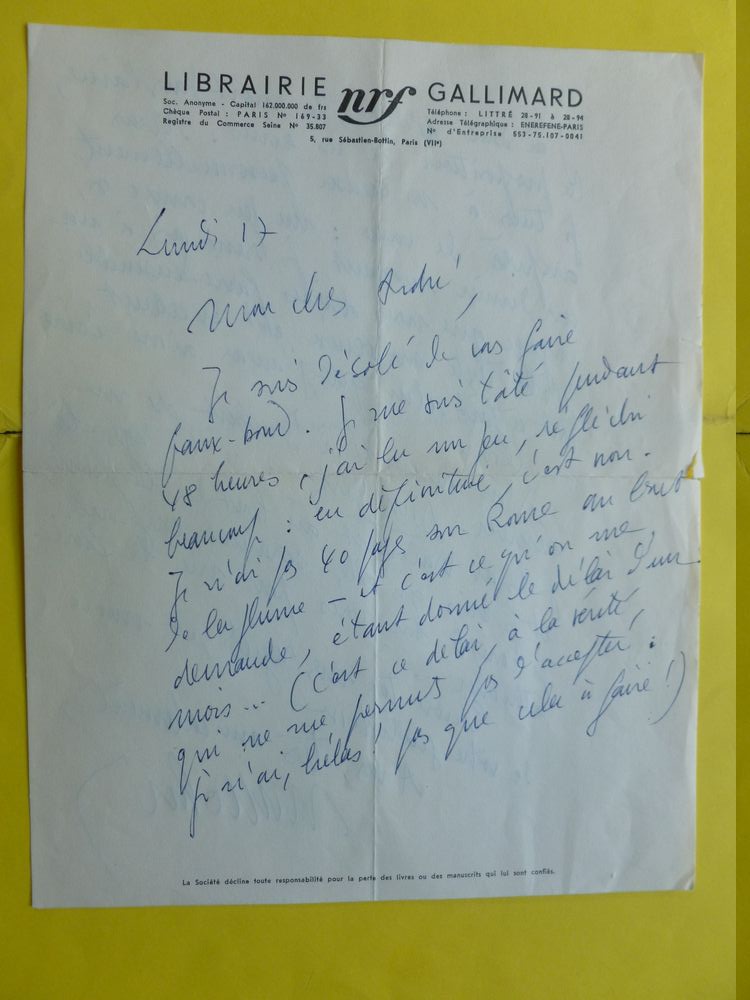 LIBRAIRIE nrf GALLIMARD
Soc. Anonyme - Capital 162.000.000 de frs
Chèque Postal : PARIS Nº 169-33
Registre du Commerce Seine Nº 35.807
Téléphone : LITTRÉ 28-91 à 28-94
Adresse Télégraphique : ENEREFENE-PARIS
Nº d'Entreprise 553-75.107-0041
5, rue Sébastien-Bottin, Paris (VIIe)
Lundi 17
Mon cher André,
Je suis désolé de vous faire
faux-bond. Je me suis tâté pendant
48 heures, j'ai lu un peu, réfléchi
beaucoup : en définitive, c'est non.
Je n'ai pas 40 pages sur Rome au bout
de la plume — et c'est ce qu'on me
demande, étant donné le délai d'un
mois... (C'est ce délai, à la vérité,
qui ne me permet pas d'accepter :
je n'ai, hélas ! pas que cela à faire !)
La Société décline toute responsabilité pour la perte des livres ou des manuscrits qui lui sont confiés.